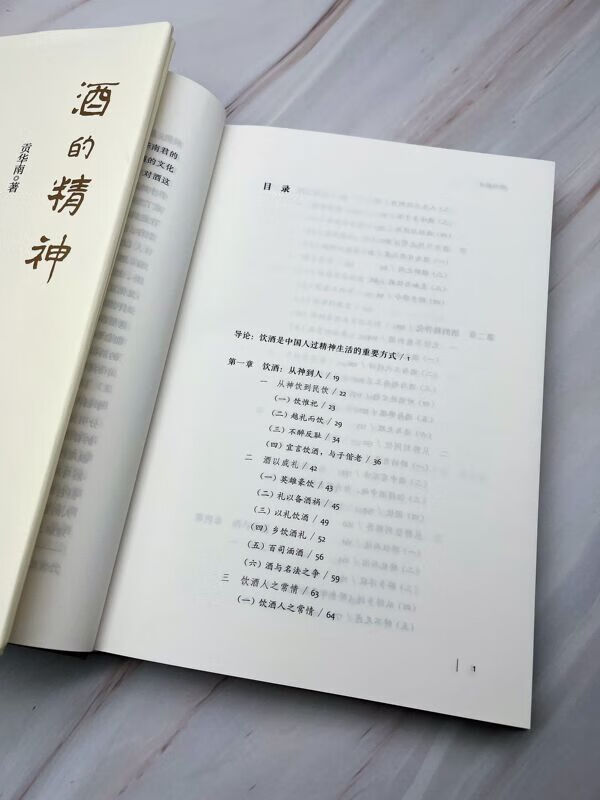 酒的精神
贡华南 著
华南君的
的文化
对酒这
目 录
导论：饮酒是中国人过精神生活的重要方式 / 1
第一章 饮酒：从神到人 / 19
一 从神饮到民饮 / 22
（一）饮惟祀 / 23
（二）越礼而饮 / 29
（三）不醉反耻 / 34
（四）宜言饮酒，与子偕老 / 36
二 酒以成礼 / 42
（一）英雄豪饮 / 43
（二）礼以备酒祸 / 45
（三）以礼饮酒 / 49
（四）乡饮酒礼 / 52
（五）百司湎酒 / 56
（六）酒与名法之争 / 59
三 饮酒人之常情 / 63
（一）饮酒人之常情 / 64
1